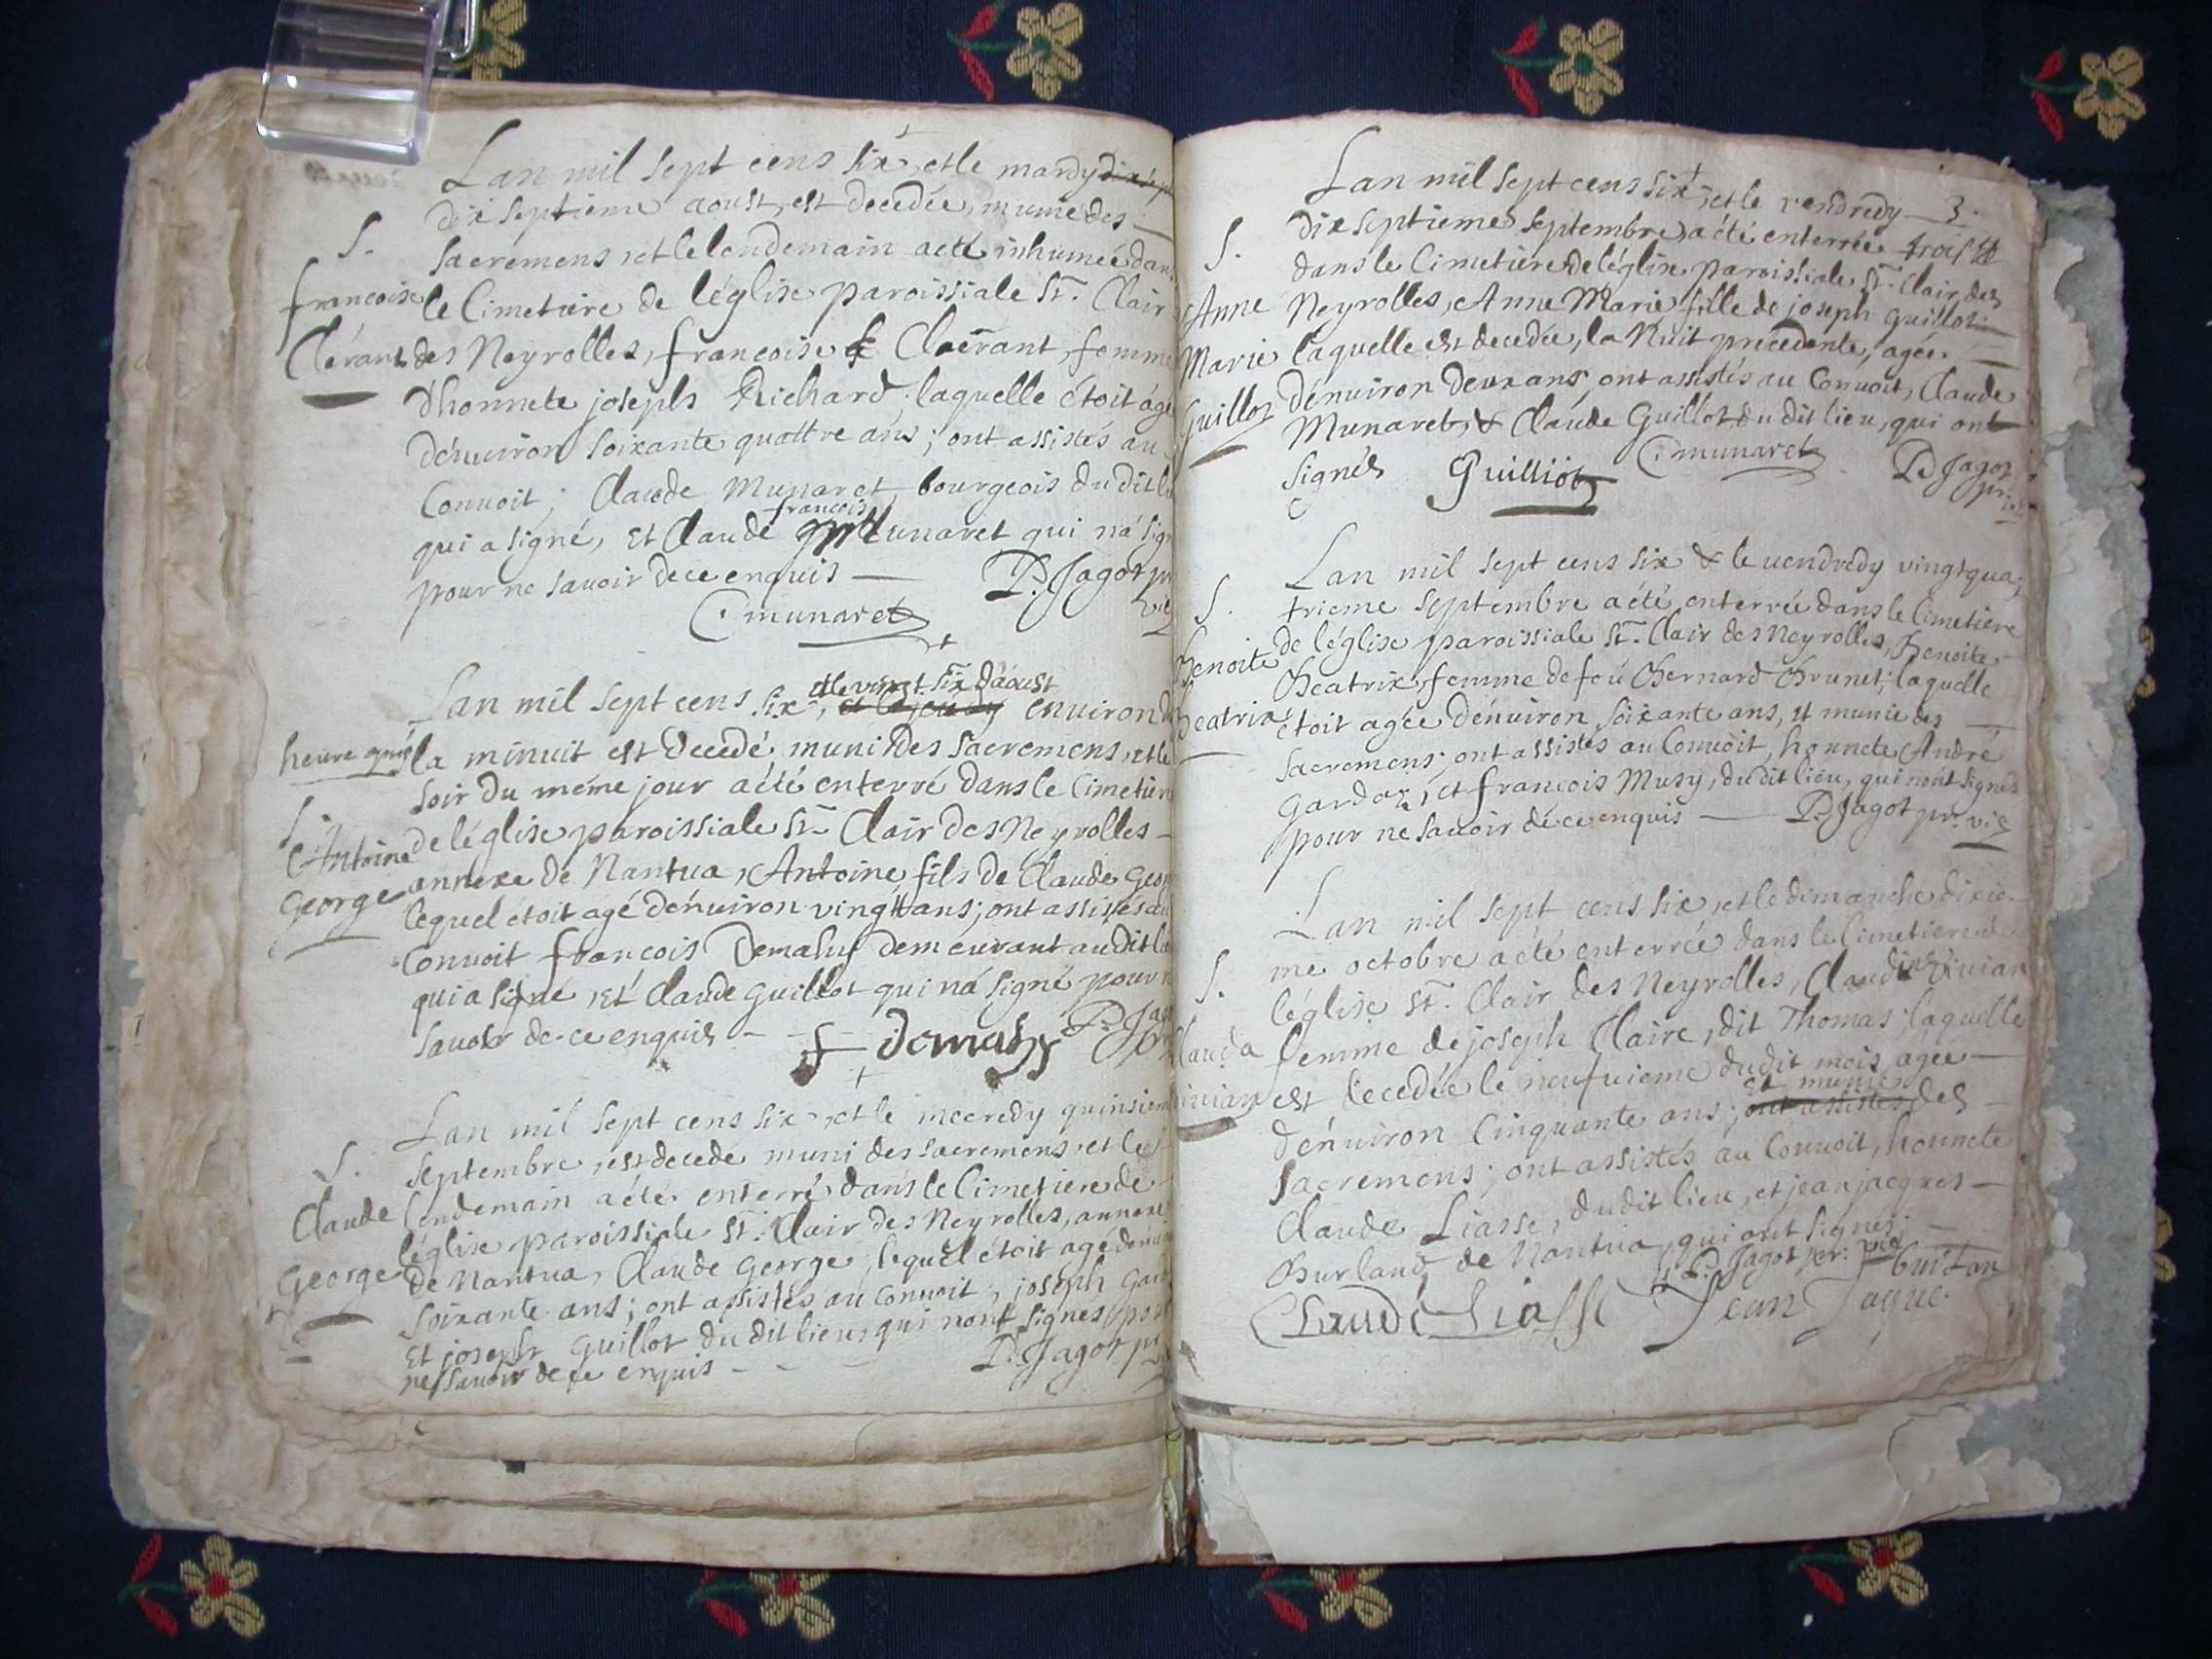 Lan mil sept cens six, et le mardy
dix septieme aoust, est decedée, munie des
S.
sacremens, et le lendemain a eté inhumée dans
francoise
le Cimetiere de léglise paroissiale St. Clair
Clérant
des Neyrolles, francoise Claerant, femme
d'honnete joseph Richard, laquelle étoit agée
dénuiron soixante quattre ans; ont assistés au
Conuoit, Claude Munaret bourgeois du dit
francois
qui a signé, et Claude Munaret qui na signé
pour ne sauoir de ce enquis — P. Jagot pr
C munaret vic
et le vingt six d'aoust
Lan mil sept cens six, et le jeudy enuiron
heure apré
la minuit est decedé muni des sacremens, et le
soir du méme jour a été enterré dans le Cimetiere
S.
Antoine
de léglise paroissiale St Clair des Neyrolles
George
annexe de Nantua, Antoine, fils de Claude
lequel étoit agé dénuiron vingt ans; ont assistés au
Conuoit francois Demalus demeurant au dit
qui a signé, Et Claude Guillot qui na signé pour
sauoir de ce enquis P. Jagot
Lan mil sept cens six, et le mecredy quinsieme
S.
septembre, est decedé muni des sacremens, et le
Claude
lendemain a été enterré dans le Cimetiere de
léglise paroissiale St. Clair des Neyrolles, annexe
George
de Nantua, Claude George, lequel étoit agé dénuiron
soixante ans; ont assistés au Conuoit, joseph
Et joseph Guillot du dit lieu, qui nont signés pour
ne sauoir de ce enquis - - - P. Jagot pr
Lan mil sept cens six, et le vendredy 3.
dix septieme septembre, a été enterrée trois
S.
dans le Cimetiere de léglise paroissiale St. Clair des
Anne
Neyrolles, Anne Marie fille de joseph Guillot
Marie
laquelle est decedée, la Nuit precedente, agée
Guillot
dénuiron deux ans, ont assistés au Conuoit, Claude
Munaret, & Claude Guillot du dit lieu, qui ont
signés Guilliot C munaret P. Jagot
pr.
Lan mil sept cens six & le uendredy vingt qua-
S.
trieme septembre a été enterrée dans le Cimetiere
Benoite
de léglise paroissiale St. Clair des Neyrolles, Benoite
Beatrix
Beatrix, femme de feu Bernard Brunet, laquelle
étoit agée dénuiron soixante ans, et munie des
sacremens; ont assistés au Conuoit, honnete André
Gardaz, et francois Musy, du dit lieu, qui nont signés
pour ne sauoir de ce enquis — P. Jagot pr. vic
Lan mil sept cens six, et le dimanche dixie-
me octobre a été enterrée dans le Cimetiere de
S.
léglise St. Clair des Neyrolles, Claudine Viuian
Clauda
femme de joseph Claire, dit Thomas, laquelle
Viuian
est decedée le neufuieme du dit mois, agée
et munie
dénuiron Cinquante ans; ont assistés des
sacremens; ont assistés au Conuoit, honnete
Claude Liasse, du dit lieu, et jean jacques
Burland, de Nantua, qui ont signés.
P. Jagot pr. vic
Claude Liasse Jean Jaque